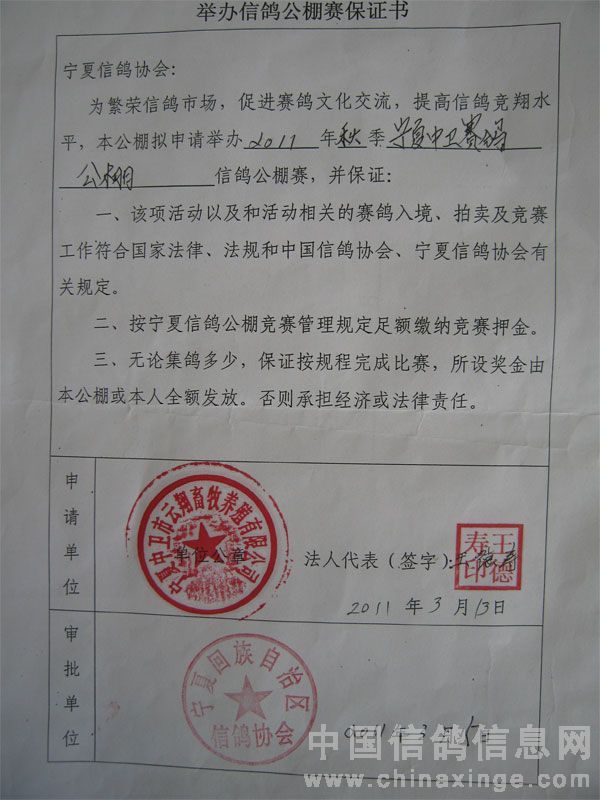 举办信鸽公棚赛保证书
宁夏信鸽协会：
为繁荣信鸽市场，促进赛鸽文化交流，提高信鸽竞翔水
平，本公棚拟申请举办 2011 年秋季 宁夏中卫赛鸽
公棚 信鸽公棚赛，并保证：
一、该项活动以及和活动相关的赛鸽入境、拍卖及竞赛
工作符合国家法律、法规和中国信鸽协会、宁夏信鸽协会有
关规定。
二、按宁夏信鸽公棚竞赛管理规定足额缴纳竞赛押金。
三、无论集鸽多少，保证按规程完成比赛，所设奖金由
本公棚或本人全额发放。否则承担经济或法律责任。
申请单位
宁夏中卫市云翔畜牧养殖有限公司
单位公章
法人代表（签字）：王德寿
王德寿印
2011 年 3 月 13日
审批单位
宁夏回族自治区
信鸽协会
2011 年 3 月 日
中国信鸽信息网
www.chinaxinge.com